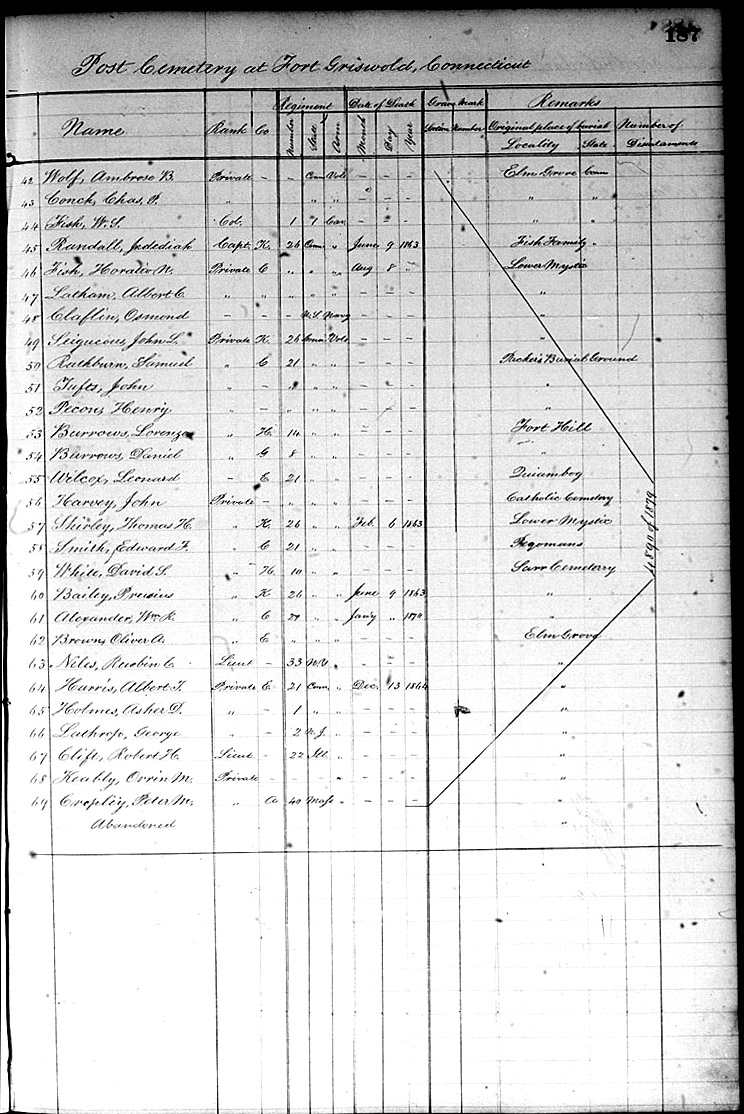 187
Post Cemetery at Fort Griswold, Connecticut
Regiment Date of Death Grave Mark Remarks
Name Rank Co Number State Arm Month Day Year Section Number Original place of burial Number of
Locality State Disinterments
42 Wolf, Ambrose B. Private - - Conn Vols - - - Elm Grove Conn
43 Conch, Chas. P. " - - " " - - - " "
44 Fish, W. S. Col. 1 " Cav. - - - " "
45 Randall, Jedediah Capt. K. 26 Conn. " June 9 1863 Fish Family "
46 Fish, Horatio N. Private C " " " Aug 8 " Lower Mystic
47 Latham, Albert C. " " " " " - - - "
48 Claflin, Osmond - - - U.S. Navy - - - "
49 John L. Private K. 26 Conn. Vols - - - "
50 Rathburn, Samuel " C 21 " " - - - Packer's Burial Ground
51 Tufts, John " - " " " - - - "
52 Pecon, Henry " - " " " - - - "
53 Burrows, Lorenzo " H. 14 " " - - - Fort Hill
54 Burrows, Daniel " G 8 " " - - - "
55 Wilcox, Leonard - E 21 " " - - - Quiambog
56 Harvey, John Private - " " " - - - Catholic Cemetery
57 Shirley, Thomas H. " K 26 " " Feb. 6 1863 Lower Mystic
58 Smith, Edward F. " C 21 " " - - -
59 White, David S. " H. 10 " " - - - Starr Cemeterry
60 Bailey, " K 26 " " June 9 1863 "
61 Alexander, Wm. K. " C " " Jan'y " "
62 Brown, Oliver A. " E " " " - - - Elm Grove
63 Niles, Reubin C. Lieut - 33 " - - - "
64 Harris, Albert T. Private E 21 Conn. " Dec. 13 1864 "
65 Holmes, Asher D. " - 1 " " - - - "
66 Lathrop, George " - 2 N. J. " - - - "
67 Clift, Robert H. Lieut - 22 Ill. " - - - "
68 Keably, Orrin M. Private - - - " - - - "
69 Cropley, Peter M. " A 40 Mass " - - - "
Abandoned "
4890 of 1879